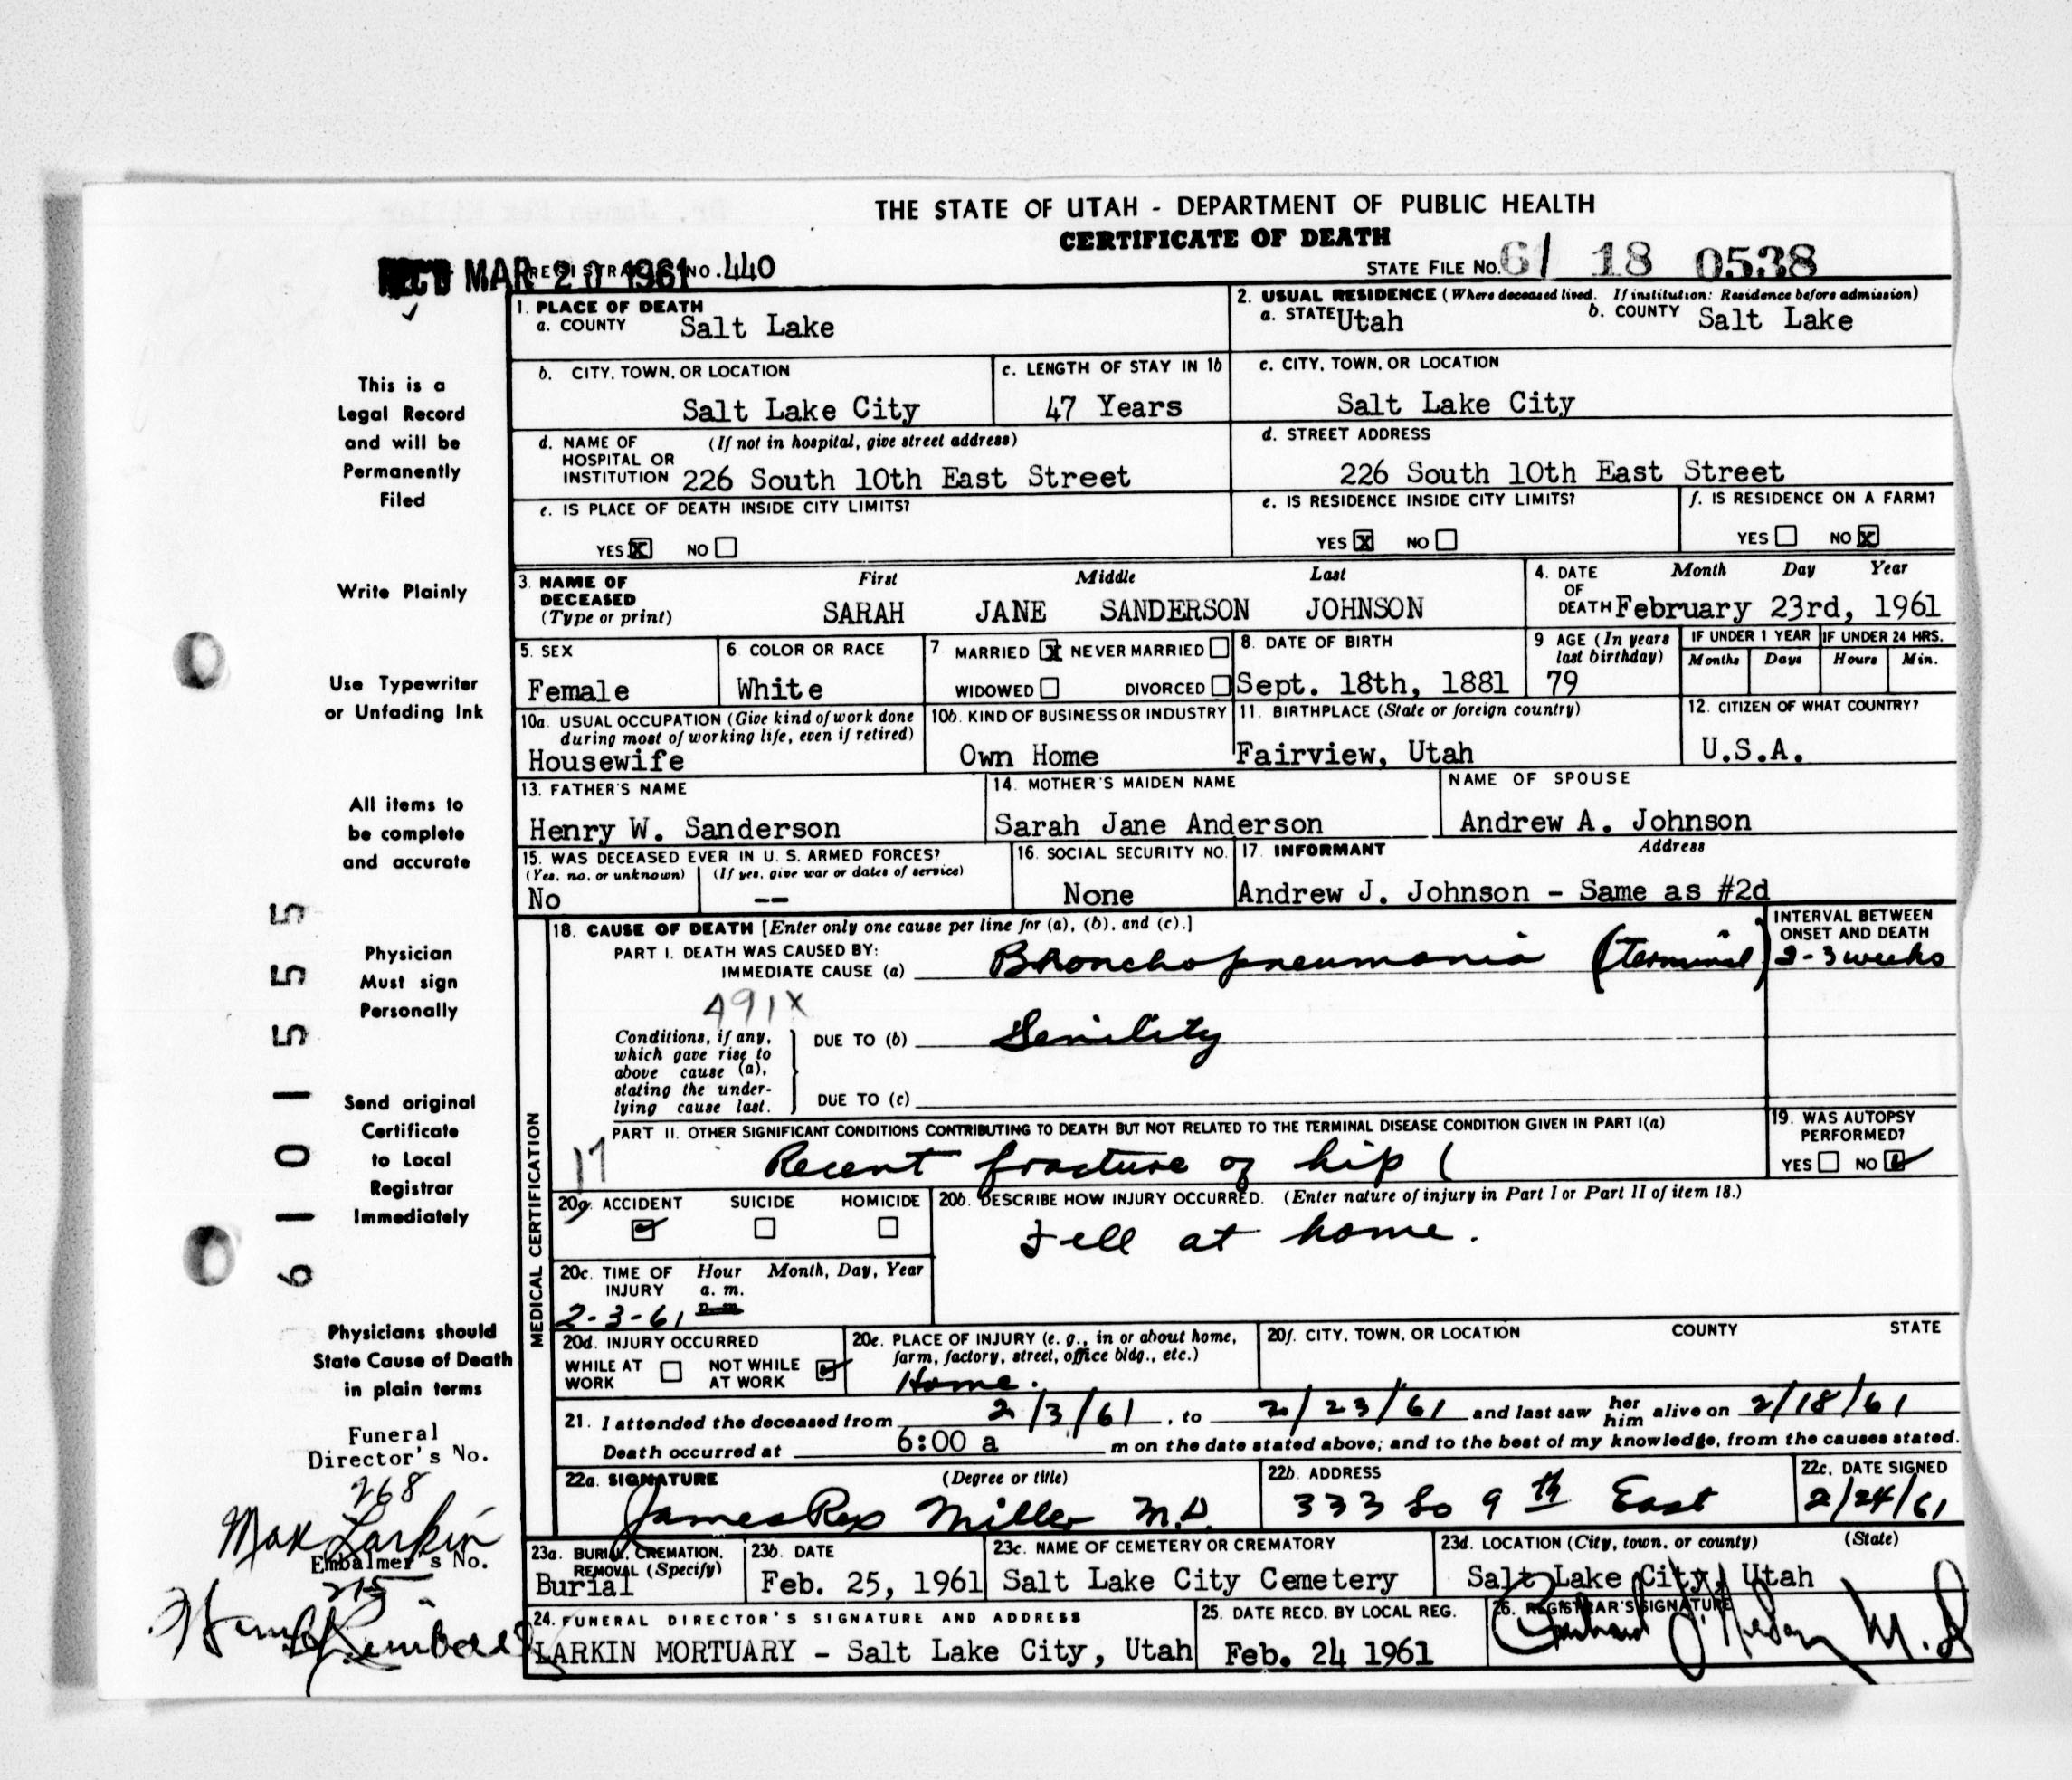 THE STATE OF UTAH - DEPARTMENT OF PUBLIC HEALTH
CERTIFICATE OF DEATH
REC'D MAR 20 1961 REGISTRAR'S NO. 440
STATE FILE NO. 61 18 0538
1. PLACE OF DEATH
a. COUNTY Salt Lake
2. USUAL RESIDENCE (Where deceased lived. If institution: Residence before admission)
a. STATE Utah b. COUNTY Salt Lake
b. CITY, TOWN, OR LOCATION
Salt Lake City
c. LENGTH OF STAY IN 1b
47 Years
c. CITY, TOWN, OR LOCATION
Salt Lake City
d. NAME OF HOSPITAL OR INSTITUTION (If not in hospital, give street address)
226 South 10th East Street
d. STREET ADDRESS
226 South 10th East Street
e. IS PLACE OF DEATH INSIDE CITY LIMITS?
YES X NO
e. IS RESIDENCE INSIDE CITY LIMITS?
YES X NO
f. IS RESIDENCE ON A FARM?
YES NO X
3. NAME OF DECEASED (Type or print)
First Middle Last
SARAH JANE SANDERSON JOHNSON
4. DATE OF DEATH Month Day Year
February 23rd, 1961
5. SEX
Female
6. COLOR OR RACE
White
7. MARRIED X NEVER MARRIED
WIDOWED DIVORCED
8. DATE OF BIRTH
Sept. 18th, 1881
9 AGE (In years last birthday)
79
IF UNDER 1 YEAR IF UNDER 24 HRS.
Months Days Hours Min.
10a. USUAL OCCUPATION (Give kind of work done during most of working life, even if retired)
Housewife
10b. KIND OF BUSINESS OR INDUSTRY
Own Home
11. BIRTHPLACE (State or foreign country)
Fairview, Utah
12. CITIZEN OF WHAT COUNTRY?
U.S.A.
13. FATHER'S NAME
Henry W. Sanderson
14. MOTHER'S MAIDEN NAME
Sarah Jane Anderson
NAME OF SPOUSE
Andrew A. Johnson
15. WAS DECEASED EVER IN U. S. ARMED FORCES?
(Yes, no, or unknown) (If yes, give war or dates of service)
No --
16. SOCIAL SECURITY NO.
None
17. INFORMANT Address
Andrew J. Johnson - Same as #2d
MEDICAL CERTIFICATION
18. CAUSE OF DEATH [Enter only one cause per line for (a), (b), and (c).]
INTERVAL BETWEEN ONSET AND DEATH
PART I. DEATH WAS CAUSED BY:
IMMEDIATE CAUSE (a) Bronchopneumonia (terminal) 2-3 weeks
491X
Conditions, if any, which gave rise to above cause (a), stating the underlying cause last.
DUE TO (b) Senility
DUE TO (c)
PART II. OTHER SIGNIFICANT CONDITIONS CONTRIBUTING TO DEATH BUT NOT RELATED TO THE TERMINAL DISEASE CONDITION GIVEN IN PART I(a)
17 Recent fracture of hip (
19. WAS AUTOPSY PERFORMED?
YES NO ✓
20a. ACCIDENT SUICIDE HOMICIDE
✓
20b. DESCRIBE HOW INJURY OCCURRED. (Enter nature of injury in Part I or Part II of item 18.)
Fell at home.
20c. TIME OF INJURY Hour Month, Day, Year
a. m.
p. m.
2-3-61
20d. INJURY OCCURRED
WHILE AT WORK NOT WHILE AT WORK ✓
20e. PLACE OF INJURY (e. g., in or about home, farm, factory, street, office bldg., etc.)
Home.
20f. CITY, TOWN, OR LOCATION COUNTY STATE
21. I attended the deceased from 2/3/61, to 2/23/61 and last saw her him alive on 2/18/61
Death occurred at 6:00 a m on the date stated above; and to the best of my knowledge, from the causes stated.
22a. SIGNATURE (Degree or title)
James Rex Miller M.D.
22b. ADDRESS
333 So 9th East
22c. DATE SIGNED
2/24/61
23a. BURIAL, CREMATION, REMOVAL (Specify)
Burial
23b. DATE
Feb. 25, 1961
23c. NAME OF CEMETERY OR CREMATORY
Salt Lake City Cemetery
23d. LOCATION (City, town, or county) (State)
Salt Lake City, Utah
24. FUNERAL DIRECTOR'S SIGNATURE AND ADDRESS
LARKIN MORTUARY - Salt Lake City, Utah
25. DATE RECD. BY LOCAL REG.
Feb. 24 1961
26. REGISTRAR'S SIGNATURE
M.D
This is a
Legal Record
and will be
Permanently
Filed
Write Plainly
Use Typewriter
or Unfading Ink
All items to
be complete
and accurate
Physician
Must sign
Personally
Send original
Certificate
to Local
Registrar
Immediately
Physicians should
State Cause of Death
in plain terms
Funeral
Director's No.
268
Max Larkin
Embalmer's No.
215
61015555